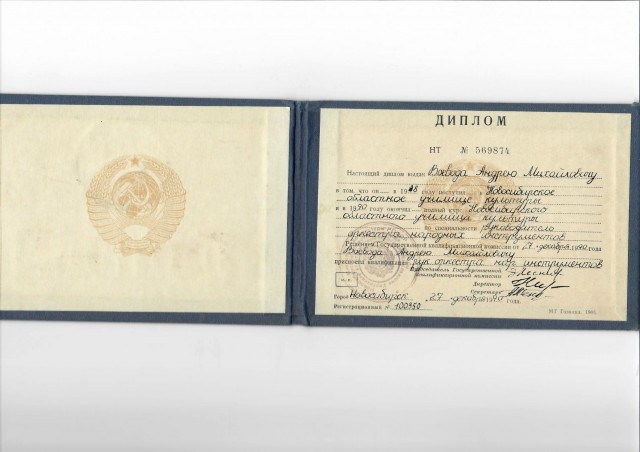 ДИПЛОМ
НТ № 569874
Настоящий диплом выдан Воевода Андрею Михайловичу
в том, что он в 1988 году поступил в Новосибирское
областное училище культуры
и в 1990 году окончил полный курс Новосибирского
областного училища культуры
по специальности руководитель
оркестра народных инструментов
Решением Государственной квалификационной комиссии от 27 декабря 1990 года
Воевода Андрею Михайловичу
присвоена квалификация рук. оркестра нар. инструментов
Председатель Государственной
квалификационной комиссии
М. П.
Директор
Секретарь
Город Новосибирск 27 декабря года.
Регистрационный № 100450
МТ Гознака.